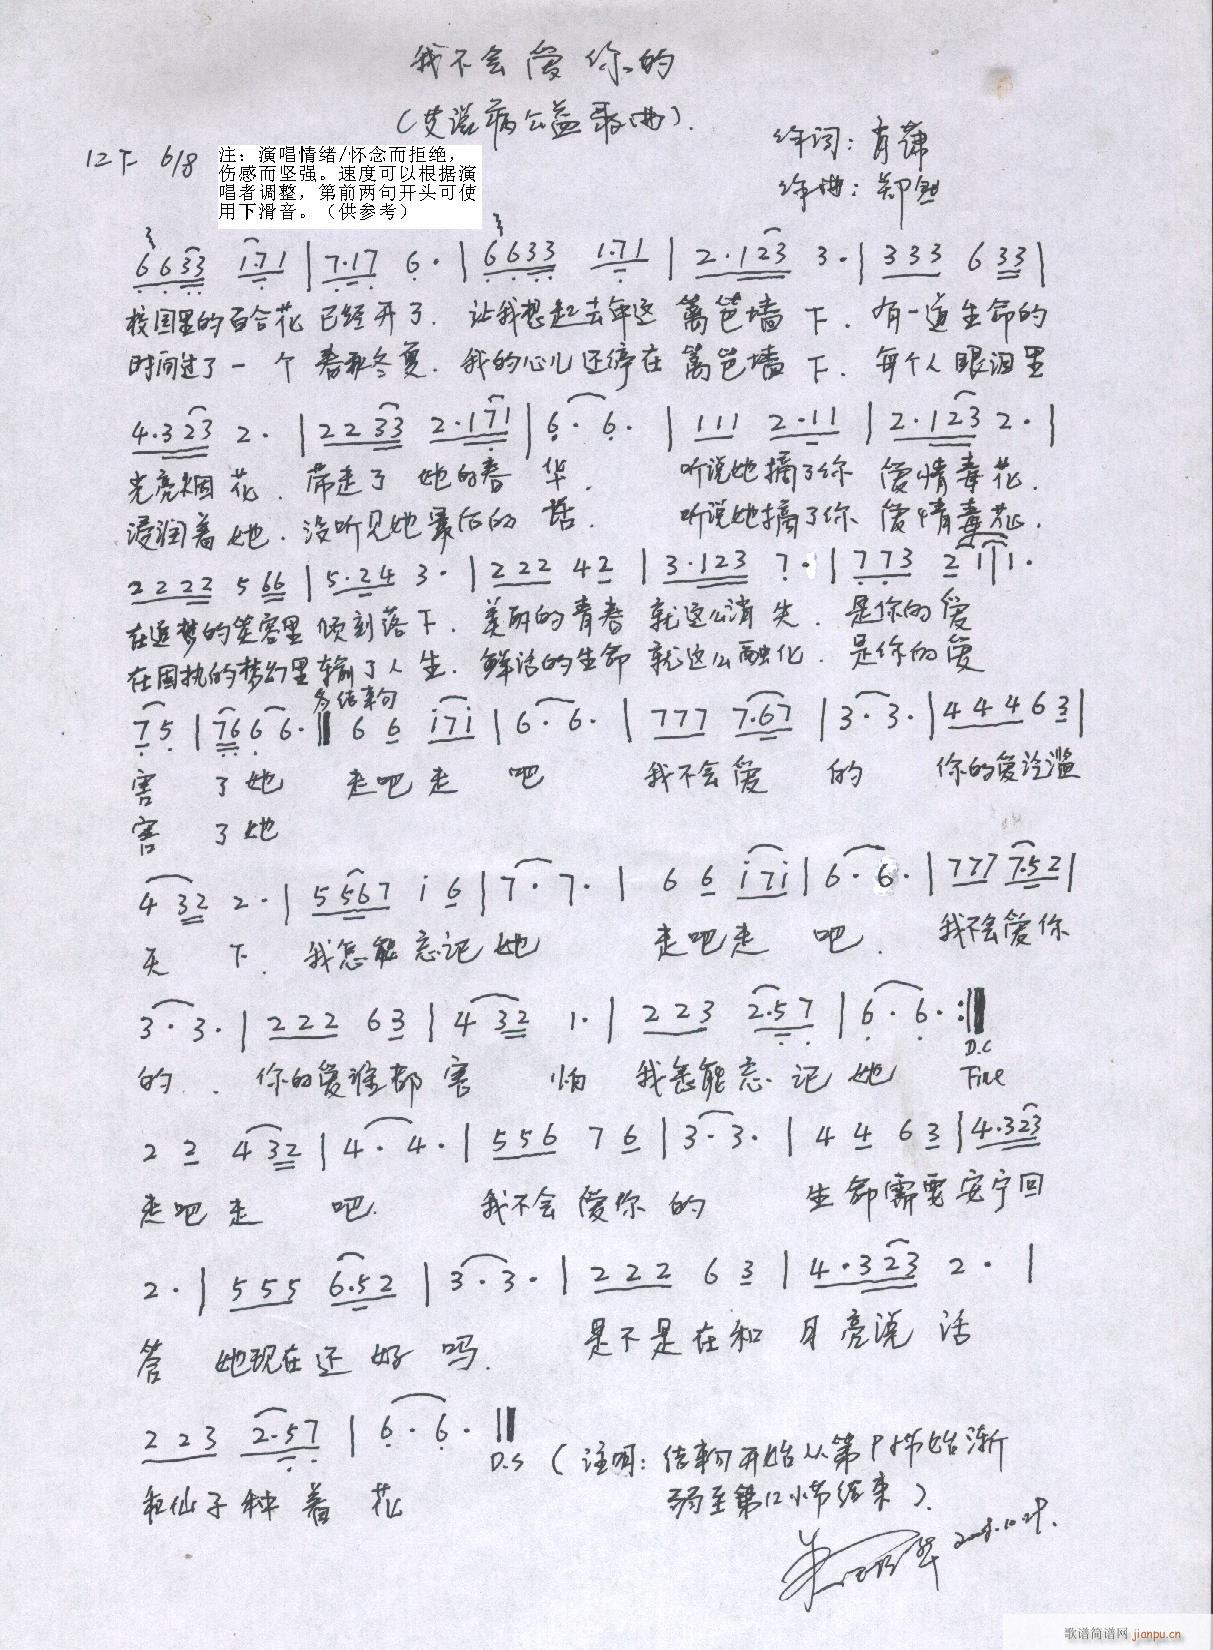 我不会爱你的
(艾滋病公益歌曲).
作词:肖萧
作曲:郑
1=F 6/8
注:演唱情绪/怀念而拒绝,
伤感而坚强。速度可以根据演
唱者调整,第前两句开头可使
用下滑音。(供参考)
6633 1.71 | 7.17 6. | 6633 1.71 | 2.123 3. | 333 6 33 |
校园里的百合花 已经开了. 让我想起去年这 篱笆墙 下. 有一道生命的
时间过了一个 春秋冬夏. 我的心儿还停在 篱笆墙 下. 每个人眼泪里
4.323 2. | 2233 2.171 | 6. 6. | 111 2.11 | 2.123 2. |
光亮烟花. 带走了 她的春华. 听说她摘了你 爱情毒花.
浸润着她. 没听见她最后的 话. 听说她摘了你 爱情毒花.
2222 5 66 | 5.24 3. | 222 42 | 3.123 7. | 773 2 1 | 1.
在追梦的笑容里 倾刻落下. 美丽的青春 就这么消失. 是你的爱
在固执的梦幻里 输了人生. 鲜活的生命 就这么融化. 是你的爱
务结束句
75 | 766 6. || 6 6 i7i | 6. 6. | 777 7.67 | 3. 3. | 444 63 |
害 了她 走吧走 吧 我不会爱 的 你的爱泛滥
害 了她
4 32 2. | 5567 i 6 | 7. 7. | 6 6 i7i | 6. 6. | 777 7.52 |
天 下. 我怎能忘记她 走吧走 吧. 我不会爱你
3. 3. | 222 63 | 4 32 1. | 223 2.57 | 6. 6. :||
的. 你的爱谁都害 怕 我怎能忘记她
D.C
Fine
2 2 432 | 4. 4. | 556 7 6 | 3. 3. | 4 4 6 3 | 4.323
走吧走 吧. 我不会爱你的 生命需要安宁回
2. | 555 6.52 | 3. 3. | 222 6 3 | 4.323 2. |
答 她现在还好吗. 是不是在和 月亮说话
223 2.57 | 6. 6. ||
D.S
和仙子种着 花
(注明:结束句开始从第 小节始渐
弱至第12小节结束).
歌谱简谱网 jianpu.cn